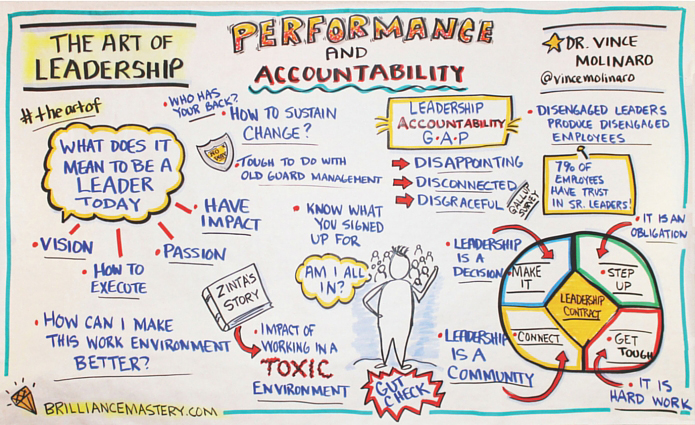 THE ART OF
LEADERSHIP
PERFORMANCE
AND
ACCOUNTABILITY
DR. VINCE
MOLINARO
@vincemolinaro
#theartof
WHAT DOES IT
MEAN TO BE A
LEADER
TODAY
• VISION
• HOW TO
EXECUTE
• PASSION
• HAVE
IMPACT
• WHO HAS
YOUR BACK?
• HOW TO SUSTAIN
CHANGE?
• TOUGH TO DO WITH
OLD GUARD MANAGEMENT
LEADERSHIP
ACCOUNTABILITY
G•A•P
DISAPPOINTING
DISCONNECTED
DISGRACEFUL
GALLUP
SURVEY
• DISENGAGED LEADERS
PRODUCE DISENGAGED
EMPLOYEES
7% OF
EMPLOYEES
HAVE TRUST
IN SR. LEADERS!
• KNOW WHAT
YOU SIGNED
UP FOR
AM I ALL
IN?
GUT
CHECK
ZINTA'S
STORY
• IMPACT OF
WORKING IN A
TOXIC
ENVIRONMENT
• HOW CAN I MAKE
THIS WORK ENVIRONMENT
BETTER?
• LEADERSHIP
IS A
DECISION
• IT IS AN
OBLIGATION
MAKE
IT
STEP
UP
LEADERSHIP
CONTRACT
CONNECT
GET
TOUGH
• LEADERSHIP
IS A
COMMUNITY
• IT IS
HARD WORK
BRILLIANCEMASTERY.COM